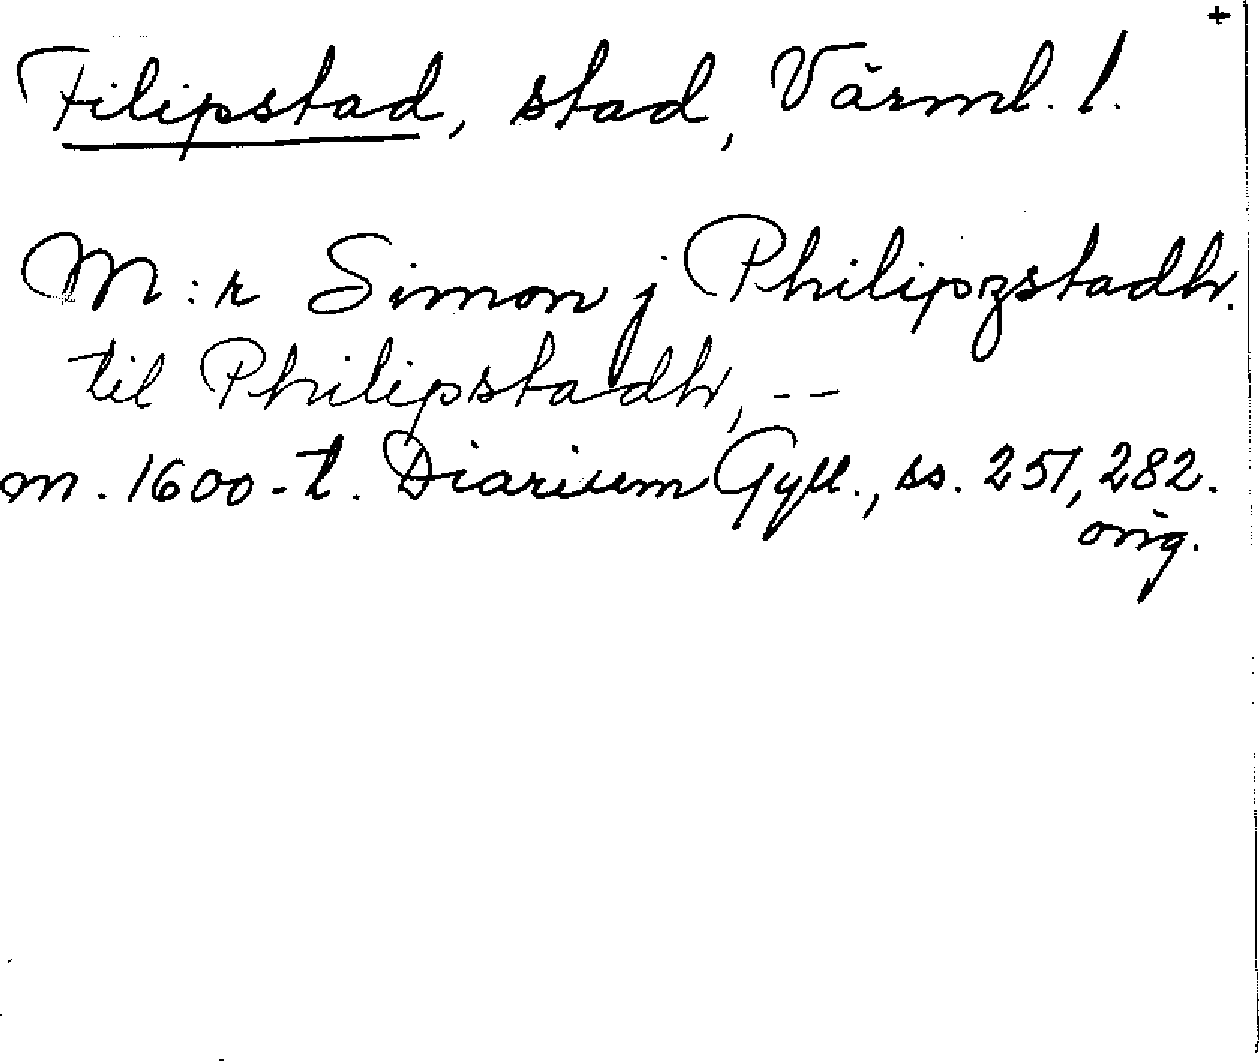 +
Filipstad, stad, Värml. l.
M:r Simon j Philipzstadh.
til Philipstadh, --
m. 1600-t. Diarium Gyll., ss. 251, 282.
orig.